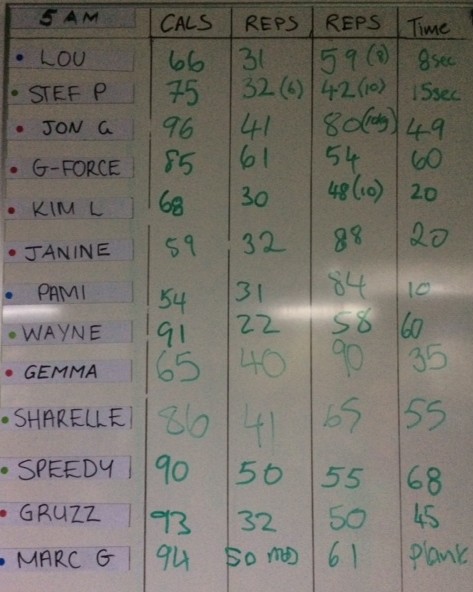 5 AM CALS REPS REPS Time
LOU 66 31 59 (8) 8sec
STEF P 75 32 (6) 42 (10) 15sec
JON G 96 41 80 49
G-FORCE 85 61 54 60
KIM L 68 30 48 (10) 20
JANINE 59 32 88 20
PAMI 54 31 84 10
WAYNE 91 22 58 60
GEMMA 65 40 90 35
SHARELLE 86 41 65 55
SPEEDY 90 50 55 68
GRUZZ 93 32 50 45
MARC G 94 50 61 Plank